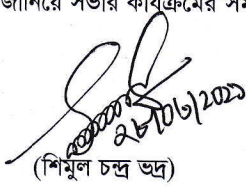 জানিয়ে সভার কার্যক্রমের সম
২৮/০৬/২০২১
(শিমুল চন্দ্র ভদ্র)